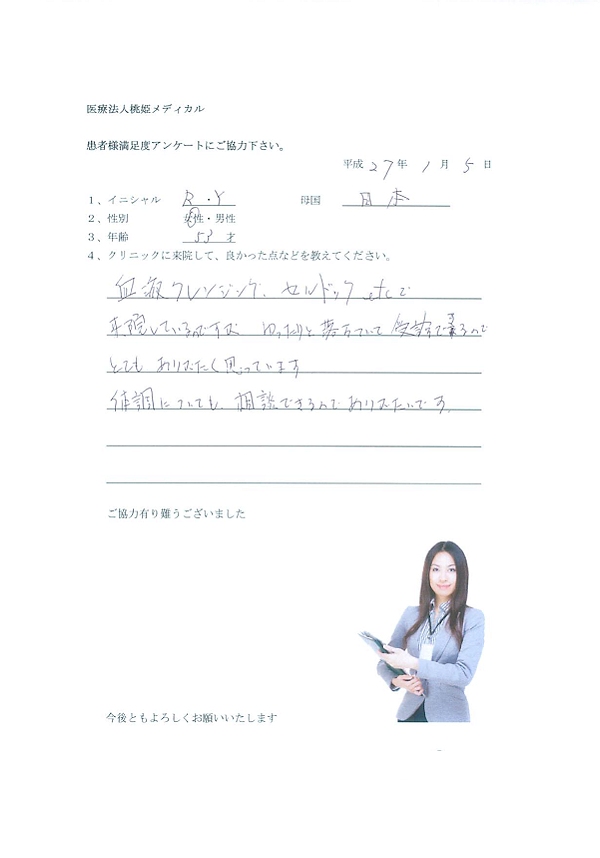 医療法人桃姫メディカル
患者様満足度アンケートにご協力下さい。
平成 27 年 1 月 5 日
1、イニシャル R.Y 母国 日本
2、性別 女性・男性
3、年齢 53 才
4、クリニックに来院して、良かった点などを教えてください。
血液クレンジング、セルドック etcで
来院しているのですが ゆったりと
とても ありがたく思っています
体調についても、相談できるので ありがたいです。
ご協力有り難うございました
今後ともよろしくお願いいたします